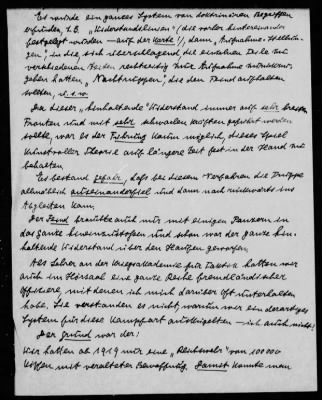 Es wurde ein ganzes System von doktrinären Begriffen
erfunden, z.B. "Widerstandslinien" (die vorher hintereinander
festgelegt wurden – auf der Karte!), dann "Aufnahme-Stellun-
gen", in die, sich überschlagend die einzelnen Teile zu
verschiedenen Zeiten rechtzeitig zur Aufnahme zurückzu-
gehen hatten, "Nachtruppen", die den Feind aufhalten
sollten, u.s.w.
Da dieser "hinhaltende" Widerstand immer auf sehr breiten
Fronten und mit sehr schwachen Kräften geführt werden
sollte, war es der Führung kaum möglich, dieses Spiel
kunstvoller Theorie auf längere Zeit fest in der Hand zu
behalten.
Es bestand Gefahr, daß bei diesem Verfahren die Truppe
allmählich auseinanderfiel und dann nach rückwärts ins
Abgleiten kam.
Der Feind brauchte auch nur mit einigen Panzern in
das Ganze hineinzustoßen und schon war der ganze hin-
haltende Widerstand über den Haufen geworfen.
Als Lehrer an der Kriegsakademie für Taktik hatten wir
auch im Hörsaal eine ganze Reihe fremdländischer
Offiziere, mit denen ich mich darüber oft unterhalten
habe. Sie verstanden es nicht, warum wir ein derartiges
System für diese Kampfart – ich auch nicht!
Der Grund war der:
Wir hatten ab 1919 nur eine "Reichswehr" von 100 000
Köpfen mit veralteter Bewaffnung. Damit konnte man